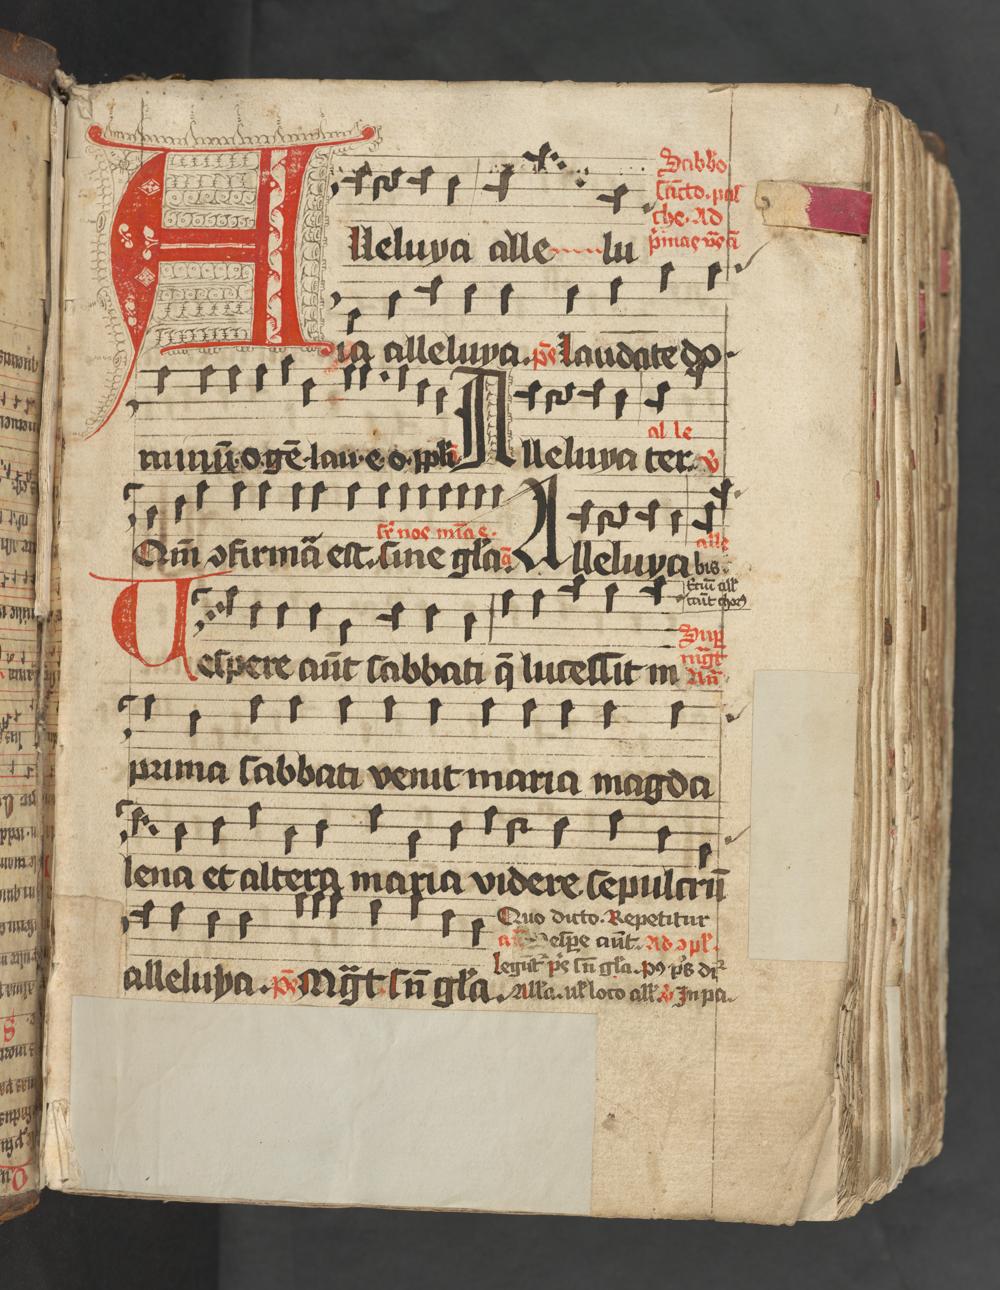 Sabb'o
s̄cto. pas
che. Ad
p'mas ves̄
Alleluya alle lu
ia alleluya. ps̄ laudate do
minū. o. gē. lau. e. o. ppl'i Alleluya ter. v̄
al le
sr̄ nos m̄ia e.
Qm̄ ɔfirmā est. sine gl'a. Alleluya bis.
alle
Vespere aūt sabbati q̄ lucessit in
Sup
mḡt
prima sabbati venit maria magda
lena et altera maria videre sepulcrū
alleluya. ps̄ Mḡt sn̄ gl'a.
Quo dicto. Repetitur
an̄ Vespe aūt. Ad ɔpl'.
legūt' ps̄ sn̄ gl'a. p9 p̄s dr̄
All'a. ul' loco all'. v̄ In pa.